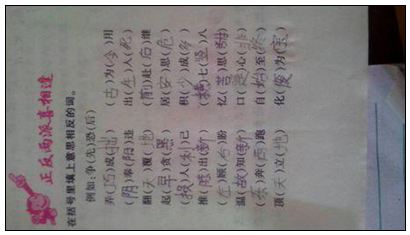 正反两派喜相逢
在括号里填上意思相反的词。
例如:争(先)恐(后)
弄(巧)成(拙) (古)为(今)用
(阴)奉(阳)违 出(生)入(死)
翻(天)覆(地) (前)赴(后)继
起(早)贪(黑) 居(安)思(危)
(损)人(利)己 积(少)成(多)
推(陈)出(新) (横)七(竖)八
(左)顾(右)盼 忆(苦)思(甜)
温(故)知(新) 口(是)心(非)
(东)奔(西)跑 自(始)至(终)
顶(天)立(地) 化(废)为(宝)